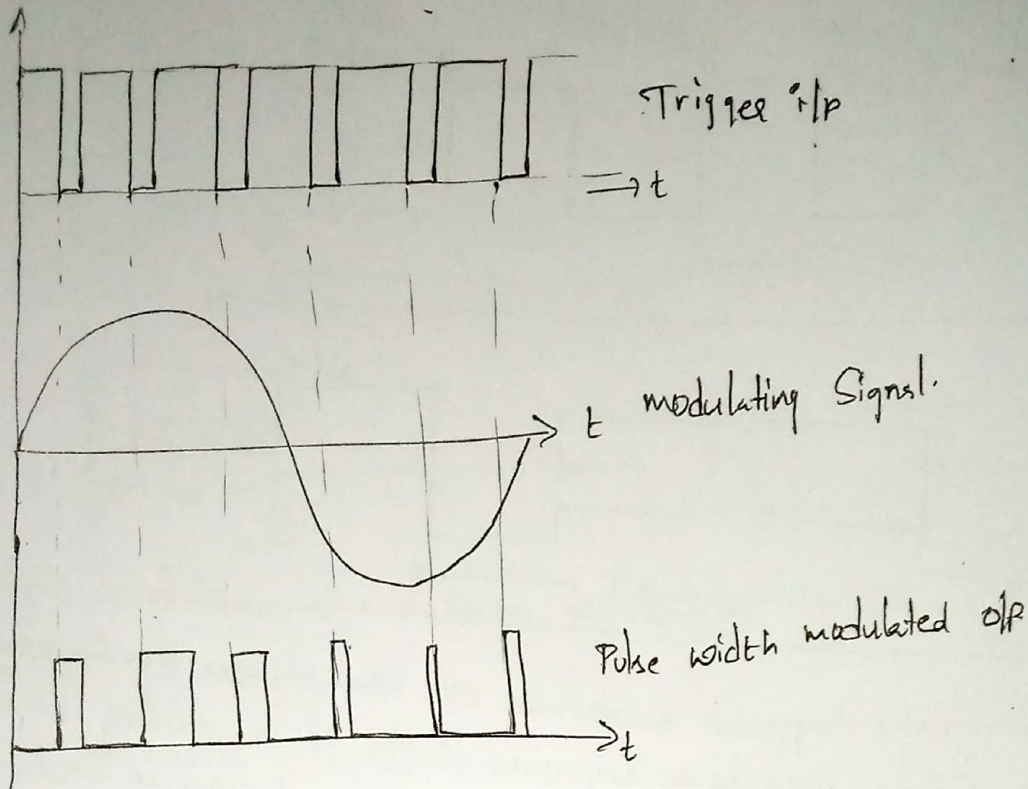 Trigger i/p
⇒ t
t modulating Signal.
Pulse width modulated o/p
t